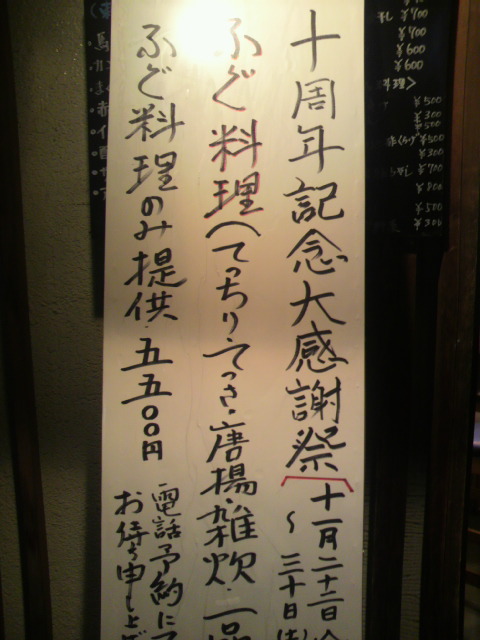 十周年記念大感謝祭
十一月二十二日
〜三十日
ふぐ料理(てっちり・てっさ・唐揚・雑炊・一品
ふぐ料理のみ提供・五五〇〇円
電話予約にて
お待ち申し上げ
¥400
¥400
¥600
¥600
¥500
¥300
¥500
¥500
¥300
¥700
¥800
¥500
¥300